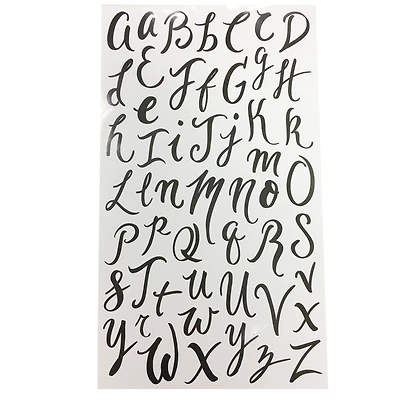 a a B b C c D
d E F f G g H
e
h I i J j K k
L l n M n m o O
P p Q q R S
s T t u U V v
y r W w X y z Z x